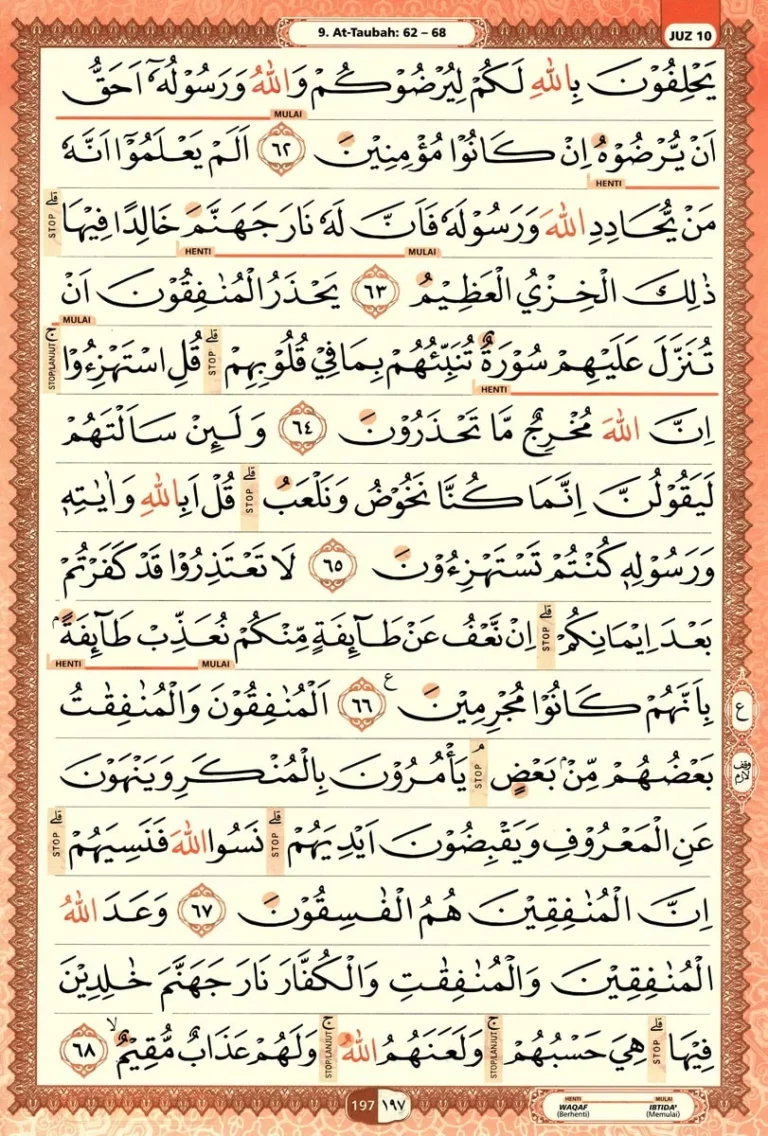 9. At-Taubah: 62 – 68
JUZ 10
يَحْلِفُوْنَ بِاللّٰهِ لَكُمْ لِيُرْضُوْكُمْ وَاللّٰهُ وَرَسُوْلُهٗٓ اَحَقُّ
MULAI
اَنْ يُّرْضُوْهُ اِنْ كَانُوْا مُؤْمِنِيْنَ ٦٢ اَلَمْ يَعْلَمُوْٓا اَنَّهٗ
HENTI
مَنْ يُّحَادِدِ اللّٰهَ وَرَسُوْلَهٗ فَاَنَّ لَهٗ نَارَ جَهَنَّمَ خَالِدًا فِيْهَا ۗ STOP
MULAI HENTI
ذٰلِكَ الْخِزْيُ الْعَظِيْمُ ٦٣ يَحْذَرُ الْمُنٰفِقُوْنَ اَنْ
MULAI
تُنَزَّلَ عَلَيْهِمْ سُوْرَةٌ تُنَبِّئُهُمْ بِمَا فِيْ قُلُوْبِهِمْ ۗ STOP قُلِ اسْتَهْزِءُوْا ۚ STOP/LANJUT
HENTI
اِنَّ اللّٰهَ مُخْرِجٌ مَّا تَحْذَرُوْنَ ٦٤ وَلَىِٕنْ سَاَلْتَهُمْ
لَيَقُوْلُنَّ اِنَّمَا كُنَّا نَخُوْضُ وَنَلْعَبُ ۗ STOP قُلْ اَبِاللّٰهِ وَاٰيٰتِهٖ
وَرَسُوْلِهٖ كُنْتُمْ تَسْتَهْزِءُوْنَ ٦٥ لَا تَعْتَذِرُوْا قَدْ كَفَرْتُمْ
بَعْدَ اِيْمَانِكُمْ ۗ STOP اِنْ نَّعْفُ عَنْ طَاۤىِٕفَةٍ مِّنْكُمْ نُعَذِّبْ طَاۤىِٕفَةً ۢ
MULAI HENTI
بِاَنَّهُمْ كَانُوْا مُجْرِمِيْنَ ࣖ ٦٦ اَلْمُنٰفِقُوْنَ وَالْمُنٰفِقٰتُ
ع
بَعْضُهُمْ مِّنْۢ بَعْضٍ ۘ STOP يَأْمُرُوْنَ بِالْمُنْكَرِ وَيَنْهَوْنَ
وقف لازم
عَنِ الْمَعْرُوْفِ وَيَقْبِضُوْنَ اَيْدِيَهُمْ ۗ STOP نَسُوا اللّٰهَ فَنَسِيَهُمْ ۗ STOP
اِنَّ الْمُنٰفِقِيْنَ هُمُ الْفٰسِقُوْنَ ٦٧ وَعَدَ اللّٰهُ
الْمُنٰفِقِيْنَ وَالْمُنٰفِقٰتِ وَالْكُفَّارَ نَارَ جَهَنَّمَ خٰلِدِيْنَ
فِيْهَا ۗ STOP هِيَ حَسْبُهُمْ ۚ STOP/LANJUT وَلَعَنَهُمُ اللّٰهُ ۚ STOP/LANJUT وَلَهُمْ عَذَابٌ مُّقِيْمٌ ۙ ٦٨
197 ١٩٧
HENTI MULAI
WAQAF IBTIDA'
(Berhenti) (Memulai)